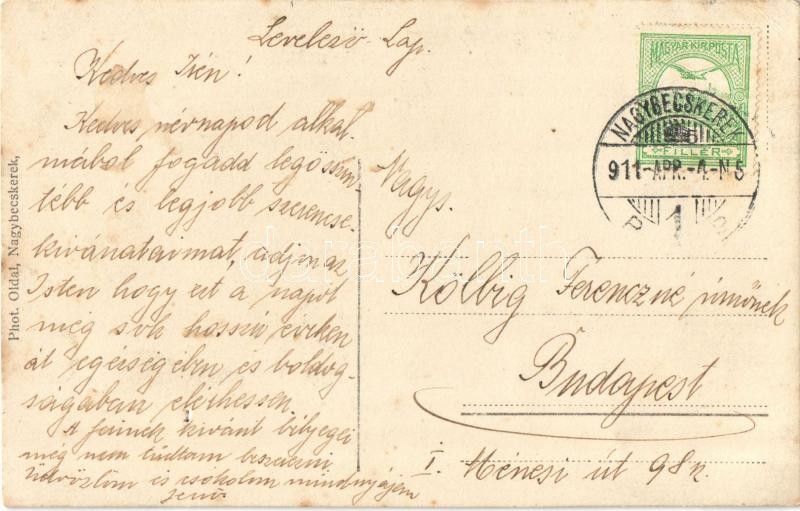 Levelező-Lap.
Kedves Irén!
Kedves névnapod alkal-
mából fogadd legőszin-
tébb és legjobb szerencse-
kivánataimat, adjon az
Isten hogy ezt a napot
még sok hosszú éveken
át egészségében és boldog-
ságában elérhessen.
A kivánt bélyegei
még nem tudtam beszerezni.
Üdvözlöm és csókolom mindnyájan
Jenő
Phot. Oldal, Nagybecskerek,
MAGYAR KIR. POSTA
FILLÉR
NAGYBECSKEREK
911-APR.-4-N5
1
Nagys.
Kölbig Ferenczné úrnőnek
Budapest
I. Ménesi út 98
darabanth